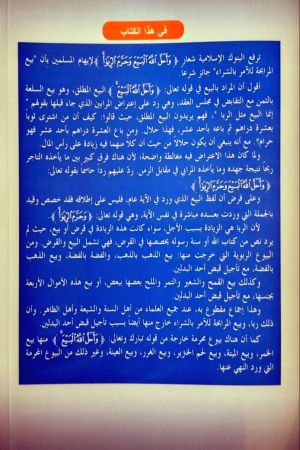 في هذا الكتاب
ترفع البنوك الإسلامية شعار ﴿وَأَحَلَّ اللَّهُ الْبَيْعَ وَحَرَّمَ الرِّبَوٰا﴾ لإيهام المسلمين بأن "بيع
المرابحة للآمر بالشراء" جائز شرعاً.
أقول أن المراد بالبيع في قوله تعالى: ﴿وَأَحَلَّ اللَّهُ الْبَيْعَ﴾ البيع المطلق، وهو بيع السلعة
بالثمن مع التقابض في مجلس العقد، وهي رد على إعتراض المرابين الذي جاء قبلها بقولهم "
إنما البيع مثل الربا "، فهم يريدون البيع المطلق، حيث قالوا: كيف أن من اشترى ثوباً
بعشرة دراهم ثم باعه بأحد عشر، فهذا حلال. ومن باع العشرة دراهم بأحد عشر فهو
حرام؟. مع أنه ينبغي أن يكون حلالاً من حيث أن كلا منهما فيه زيادة على رأس المال.
ولما كان هذا الاعتراض فيه مغالطة واضحة؛ لأن هناك فرق كبير بين ما يأخذه التاجر
ربحاً نتيجة جهده وما يأخذه المرابي في مقابل الزمن. ردّ عليهم رداً خاصاً في قوله تعالى:
﴿وَأَحَلَّ اللَّهُ الْبَيْعَ وَحَرَّمَ الرِّبَوٰا﴾.
وعلى فرض أن لفظ البيع الذي ورد في الآية عام، فليس على إطلاقه فقد خصص وقيد
بالجملة التي وردت بعده مباشرة في نفس الآية، وهي قوله تعالى: ﴿وَحَرَّمَ الرِّبَوٰا﴾.
لأن الربا هي الزيادة بسبب الأجل، سواء كانت هذه الزيادة في قرض أو بيع، حيث لم
يرد نص من كتاب الله أو سنة رسوله بتخصيصها في القرض، فهي تشمل البيع والقرض. ومن
البيوع الربوية التي خرجت منها: بيع الذهب بالذهب، والفضة بالفضة، وبيع الذهب
بالفضة، مع تأجيل قبض أحد البدلين.
وكذلك بيع القمح والشعير والتمر والملح بعضها ببعض، أو بيع هذه الأموال الأربعة
بجنسها، مع تأجيل قبض أحد البدلين.
وهذا إجماع مقطوع به، عند جميع العلماء من أهل السنة والشيعة وأهل الظاهر. وأن
ذلك ربا، وبيع المرابحة للآمر بالشراء خارج منها أيضاً بسبب تأجيل قبض أحد البدلين.
كما أن هناك بيوع محرمة خارجة من قوله تبارك وتعالى: ﴿وَأَحَلَّ اللَّهُ الْبَيْعَ﴾ منها بيع
الخمر، وبيع الميتة، وبيع لحم الخنزير، وبيع الغرر، وبيع العينة، وغير ذلك من البيوع المحرمة
التي ورد النهي عنها.